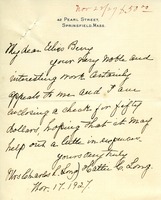 Nov 25/27 $50.00
20 Pearl Street,
Springfield, Mass.
My dear Miss Berry
your very noble and
interesting work certainly
appeals to me and I am
enclosing a check for fifty
dollars, hoping that it may
help out a little in expenses.
Yours very truly
Mrs Charles L. Long) Hattie C. Long.
Nov. 17. 1927.